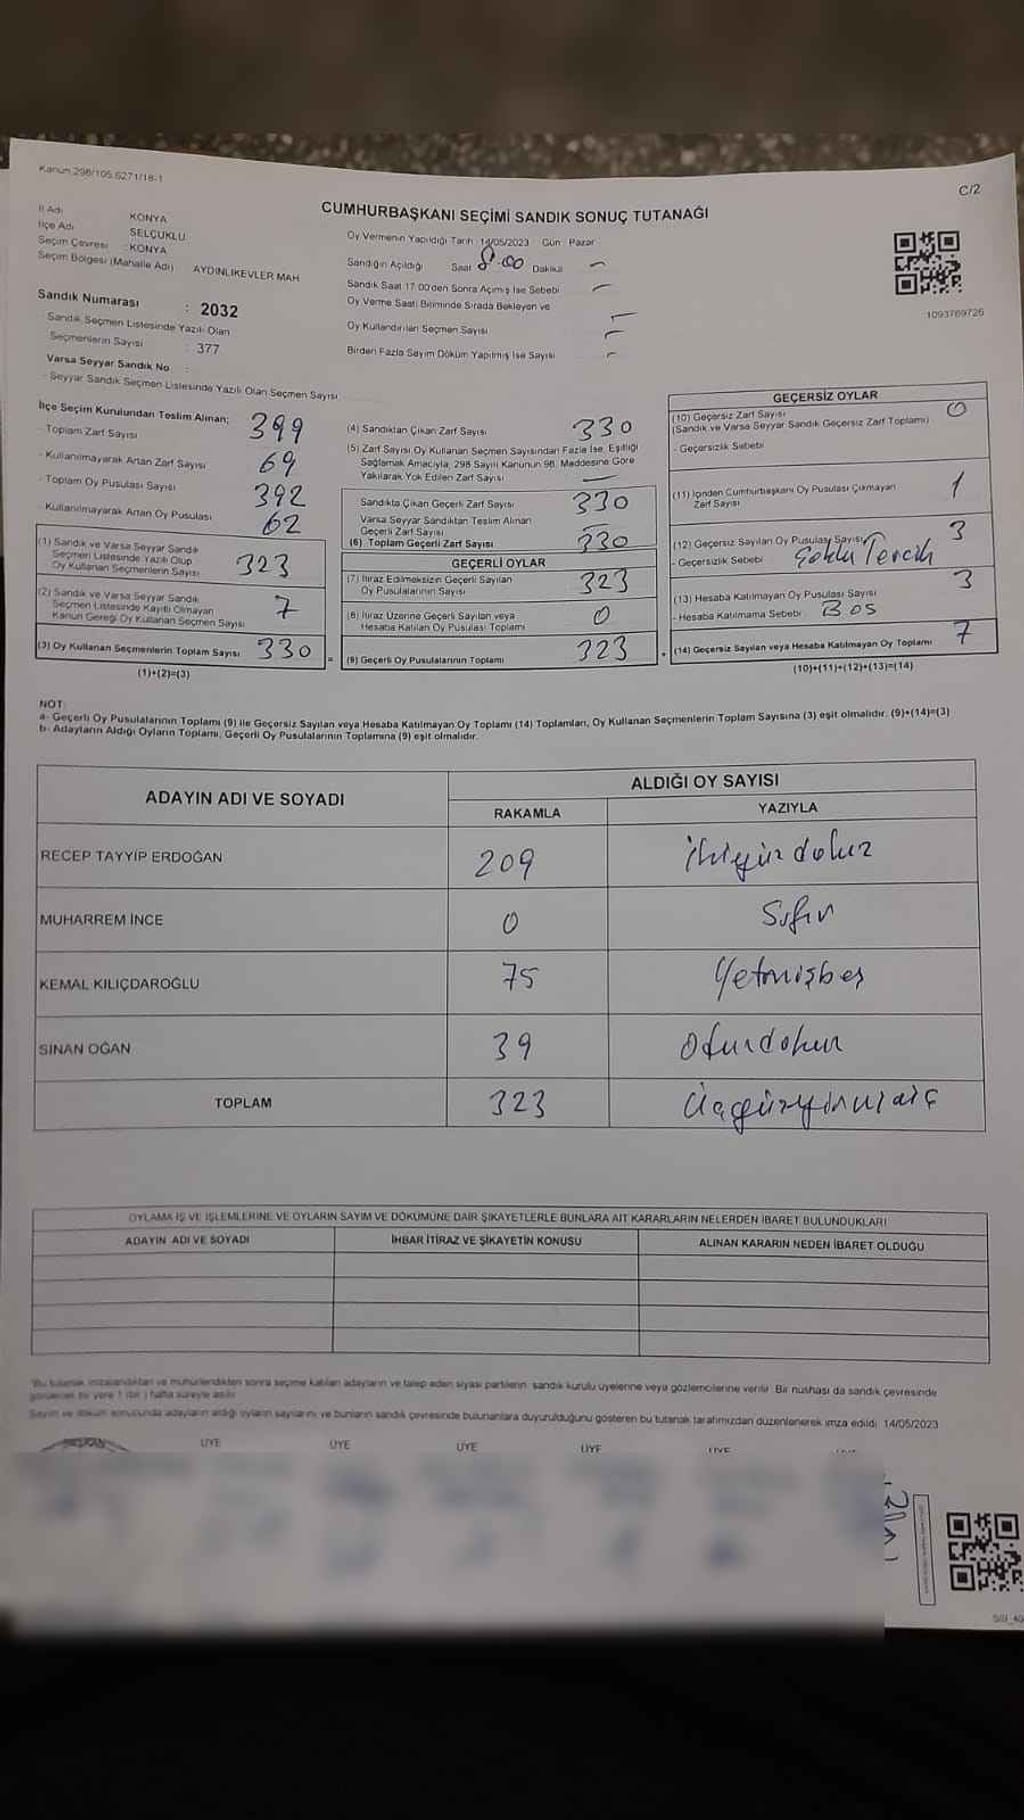 Kanun 298/105.6271/18-1
C/2
CUMHURBAŞKANI SEÇİMİ SANDIK SONUÇ TUTANAĞI
İl Adı KONYA
İlçe Adı SELÇUKLU
Seçim Çevresi KONYA
Seçim Bölgesi (Mahalle Adı) AYDINLIKEVLER MAH
Sandık Numarası : 2032
Sandık Seçmen Listesinde Yazılı Olan
Seçmenlerin Sayısı : 377
Varsa Seyyar Sandık No :
- Seyyar Sandık Seçmen Listesinde Yazılı Olan Seçmen Sayısı
Oy Vermenin Yapıldığı Tarih 14/05/2023 Gün : Pazar
Sandığın Açıldığı Saat 8.00 Dakika –
Sandık Saat 17:00'den Sonra Açılmış İse Sebebi –
Oy Verme Saati Bitiminde Sırada Bekleyen ve
Oy Kullandırılan Seçmen Sayısı –
Birden Fazla Sayım Döküm Yapılmış İse Sayısı –
1093769726
İlçe Seçim Kurulundan Teslim Alınan;
- Toplam Zarf Sayısı 399
- Kullanılmayarak Artan Zarf Sayısı 69
- Toplam Oy Pusulası Sayısı 392
- Kullanılmayarak Artan Oy Pusulası 62
(1) Sandık ve Varsa Seyyar Sandık
Seçmen Listesinde Yazılı Olup
Oy Kullanan Seçmenlerin Sayısı 323
(2) Sandık ve Varsa Seyyar Sandık
Seçmen Listesinde Kayıtlı Olmayan
Kanun Gereği Oy Kullanan Seçmen Sayısı 7
(3) Oy Kullanan Seçmenlerin Toplam Sayısı 330
(1)+(2)=(3)
(4) Sandıktan Çıkan Zarf Sayısı 330
(5) Zarf Sayısı Oy Kullanan Seçmen Sayısından Fazla İse, Eşitliği
Sağlamak Amacıyla, 298 Sayılı Kanunun 98. Maddesine Göre
Yakılarak Yok Edilen Zarf Sayısı –
Sandıkta Çıkan Geçerli Zarf Sayısı 330
Varsa Seyyar Sandıktan Teslim Alınan
Geçerli Zarf Sayısı –
(6) Toplam Geçerli Zarf Sayısı 330
GEÇERLİ OYLAR
(7) İtiraz Edilmeksizin Geçerli Sayılan
Oy Pusulalarının Sayısı 323
(8) İtiraz Üzerine Geçerli Sayılan veya
Hesaba Katılan Oy Pusulası Toplamı 0
(9) Geçerli Oy Pusulalarının Toplamı 323
GEÇERSİZ OYLAR
(10) Geçersiz Zarf Sayısı 0
(Sandık ve Varsa Seyyar Sandık Geçersiz Zarf Toplamı)
- Geçersizlik Sebebi
(11) İçinden Cumhurbaşkanı Oy Pusulası Çıkmayan
Zarf Sayısı 1
(12) Geçersiz Sayılan Oy Pusulası Sayısı 3
- Geçersizlik Sebebi Çoklu Tercih
(13) Hesaba Katılmayan Oy Pusulası Sayısı 3
- Hesaba Katılmama Sebebi Boş
(14) Geçersiz Sayılan veya Hesaba Katılmayan Oy Toplamı 7
(10)+(11)+(12)+(13)=(14)
NOT:
a- Geçerli Oy Pusulalarının Toplamı (9) ile Geçersiz Sayılan veya Hesaba Katılmayan Oy Toplamı (14) Toplamları, Oy Kullanan Seçmenlerin Toplam Sayısına (3) eşit olmalıdır. (9)+(14)=(3)
b- Adayların Aldığı Oyların Toplamı, Geçerli Oy Pusulalarının Toplamına (9) eşit olmalıdır.
ADAYIN ADI VE SOYADI
ALDIĞI OY SAYISI
RAKAMLA YAZIYLA
RECEP TAYYİP ERDOĞAN 209 ikiyüz dokuz
MUHARREM İNCE 0 Sıfır
KEMAL KILIÇDAROĞLU 75 Yetmişbeş
SİNAN OĞAN 39 Otuzdokuz
TOPLAM 323 Üçyüzyirmiüç
OYLAMA İŞ VE İŞLEMLERİNE VE OYLARIN SAYIM VE DÖKÜMÜNE DAİR ŞİKAYETLERLE BUNLARA AİT KARARLARIN NELERDEN İBARET BULUNDUKLARI
ADAYIN ADI VE SOYADI İHBAR İTİRAZ VE ŞİKAYETİN KONUSU ALINAN KARARIN NEDEN İBARET OLDUĞU
Bu tutanak imzalandıktan ve mühürlendikten sonra seçime katılan adayların ve talep eden siyasi partilerin sandık kurulu üyelerine veya gözlemcilerine verilir. Bir nüshası da sandık çevresinde
görülecek bir yere 1 (bir) hafta süreyle asılır.
Sayım ve döküm sonucunda adayların aldığı oyların sayılarını ve bunların sandık çevresinde bulunanlara duyurulduğunu gösteren bu tutanak tarafımızdan düzenlenerek imza edildi. 14/05/2023
BAŞKAN ÜYE ÜYE ÜYE ÜYE ÜYE